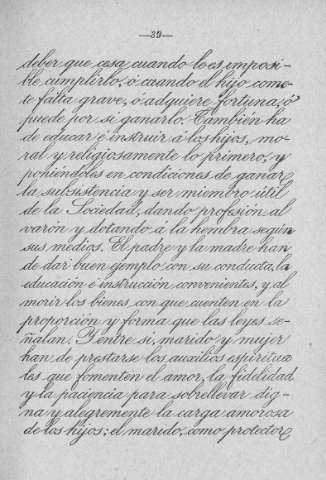 —39—
deber que cesa cuando le es imposi-
ble cumplirlo, ó cuando el hijo come-
te falta grave, ó adquiere fortuna, ó
puede por si ganarlo. También ha
de educar é instruir á los hijos, mo-
ral y religiosamente lo primero, y
poniéndoles en condiciones de ganar
la subsistencia y ser miembro útil
de la Sociedad, dando profesión al
varón y dotando á la hembra según
sus medios. El padre y la madre han
de dar buen ejemplo con su conducta, la
educación é instrucción convenientes, y, al
morir los bienes con que cuenten en la
proporción y forma que las leyes se-
ñalan. Y entre si, marido y mujer
han de prestarse los auxilios espiritua
les que fomenten el amor, la fidelidad
y la paciencia para sobrellevar dig-
na y alegremente la carga amorosa
de los hijos: el marido, como protector